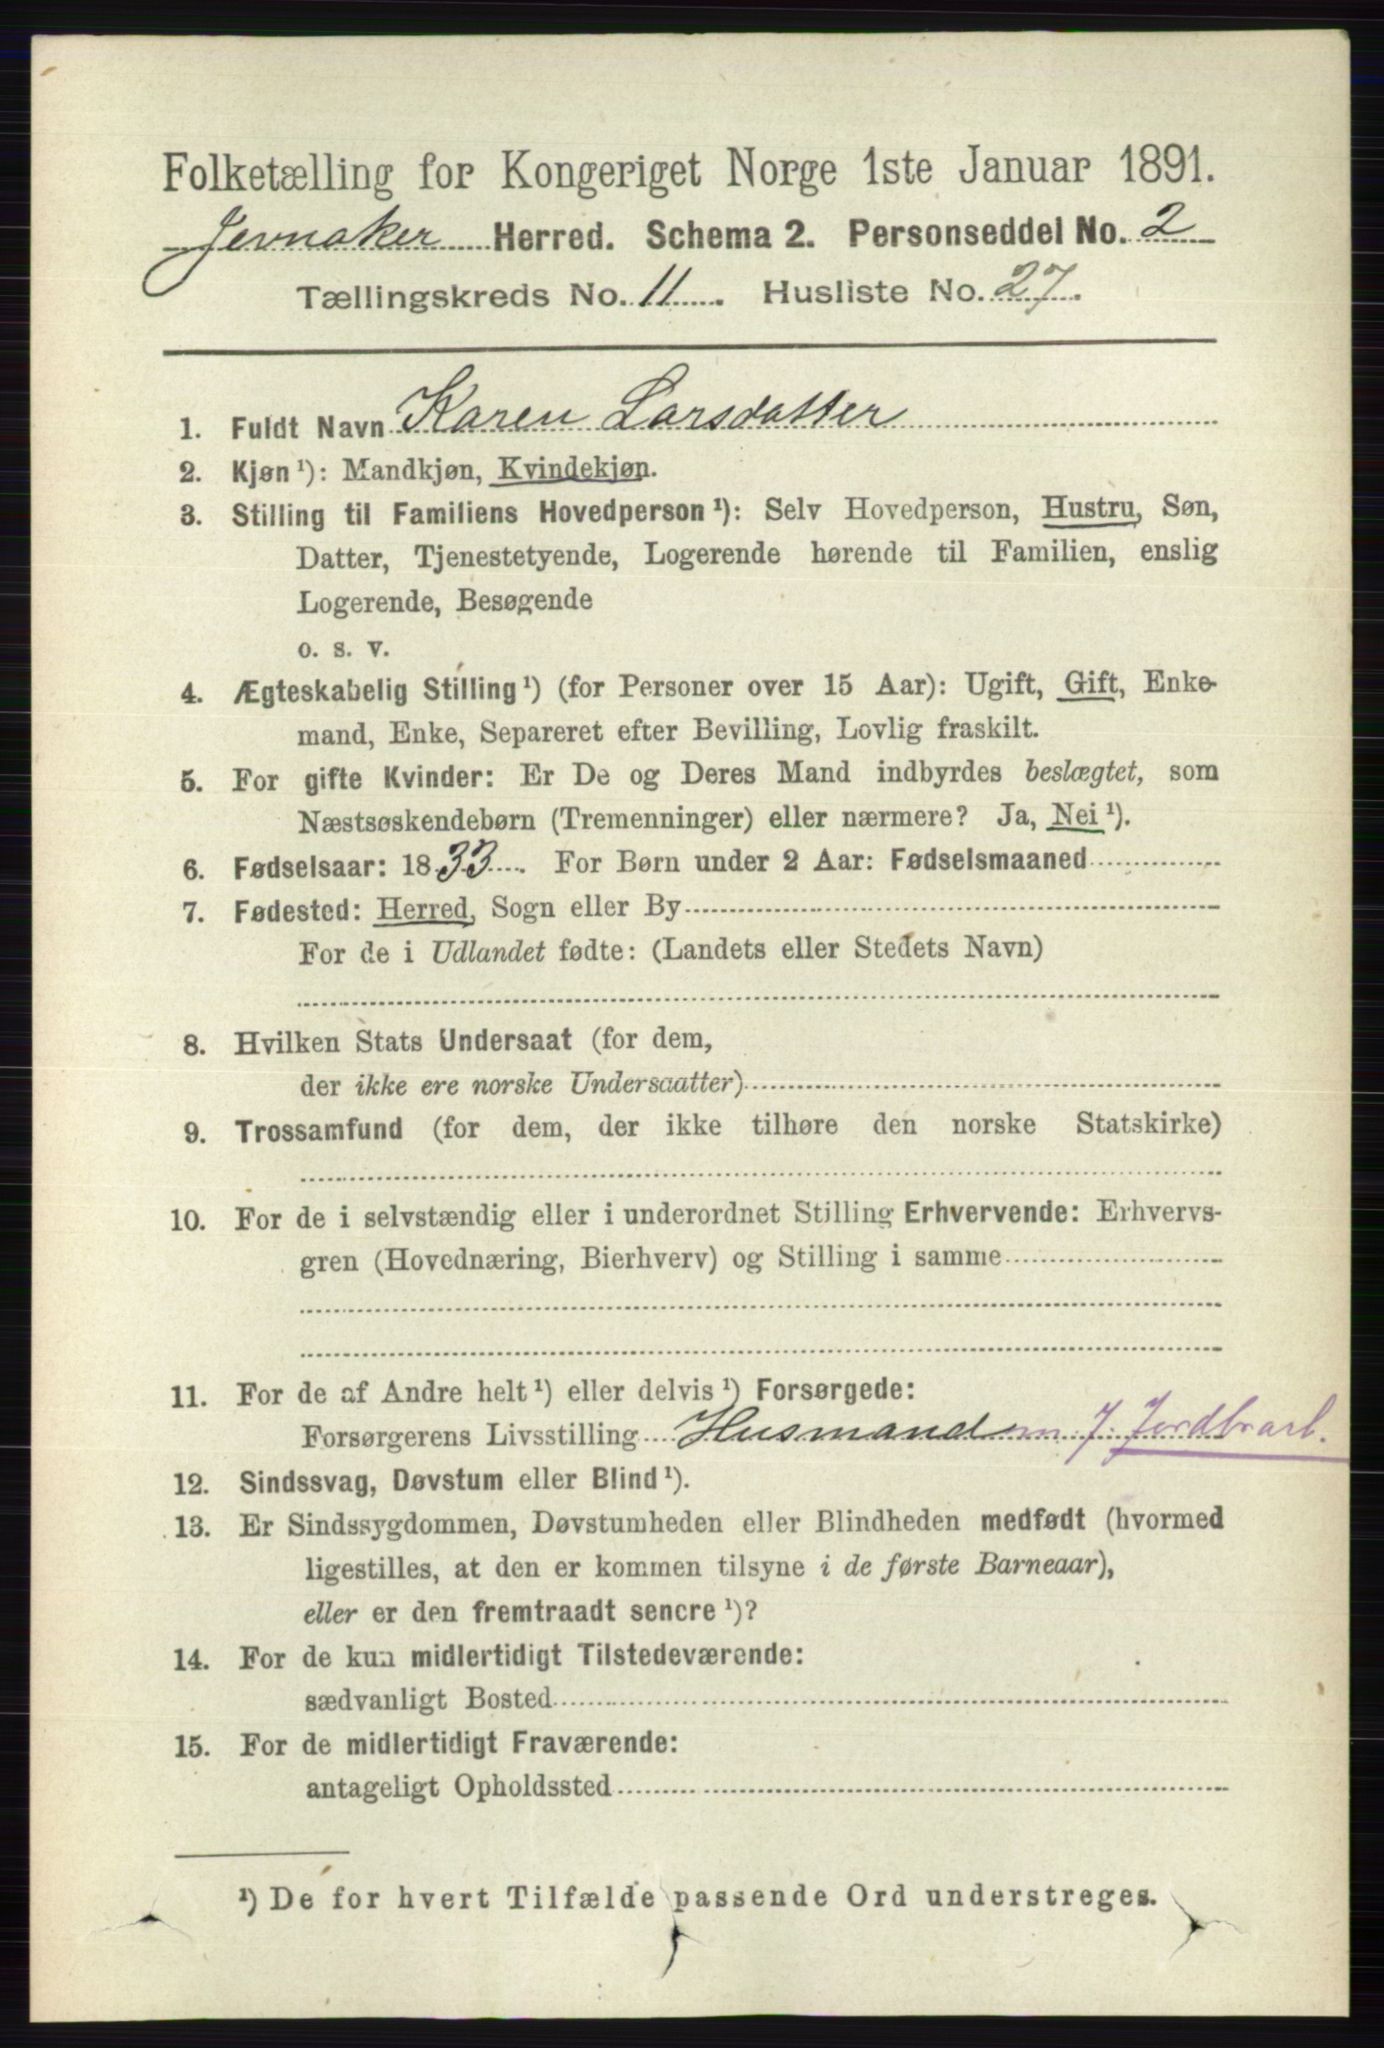 Folketælling for Kongeriget Norge 1ste Januar 1891.
Jevnaker Herred. Schema 2. Personseddel No. 2
Tællingskreds No. 11. Husliste No. 27.
1. Fuldt Navn Karen Larsdatter
2. Kjøn ¹): Mandkjøn, Kvindekjøn.
3. Stilling til Familiens Hovedperson ¹): Selv Hovedperson, Hustru, Søn,
Datter, Tjenestetyende, Logerende hørende til Familien, enslig
Logerende, Besøgende
o. s. v.
4. Ægteskabelig Stilling ¹) (for Personer over 15 Aar): Ugift, Gift, Enke-
mand, Enke, Separeret efter Bevilling, Lovlig fraskilt.
5. For gifte Kvinder: Er De og Deres Mand indbyrdes beslægtet, som
Næstsøskendebørn (Tremenninger) eller nærmere? Ja, Nei ¹).
6. Fødselsaar: 1833. For Børn under 2 Aar: Fødselsmaaned
7. Fødested: Herred, Sogn eller By
For de i Udlandet fødte: (Landets eller Stedets Navn)
8. Hvilken Stats Undersaat (for dem,
der ikke ere norske Undersaatter)
9. Trossamfund (for dem, der ikke tilhøre den norske Statskirke)
10. For de i selvstændig eller i underordnet Stilling Erhvervende: Erhvervs-
gren (Hovednæring, Bierhverv) og Stilling i samme
11. For de af Andre helt ¹) eller delvis ¹) Forsørgede:
Forsørgerens Livsstilling Husmand m. J. Jordbrarb.
12. Sindssvag, Døvstum eller Blind ¹).
13. Er Sindssygdommen, Døvstumheden eller Blindheden medfødt (hvormed
ligestilles, at den er kommen tilsyne i de første Barneaar),
eller er den fremtraadt senere ¹)?
14. For de kun midlertidigt Tilstedeværende:
sædvanligt Bosted
15. For de midlertidigt Fraværende:
antageligt Opholdssted
¹) De for hvert Tilfælde passende Ord understreges.